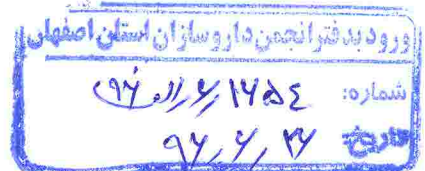 ورود به دفتر انجمن داروسازان استان اصفهان
شماره: ۱۶۵۴/۶/الف/۹۶
تاریخ ۹۶/۶/۲۶